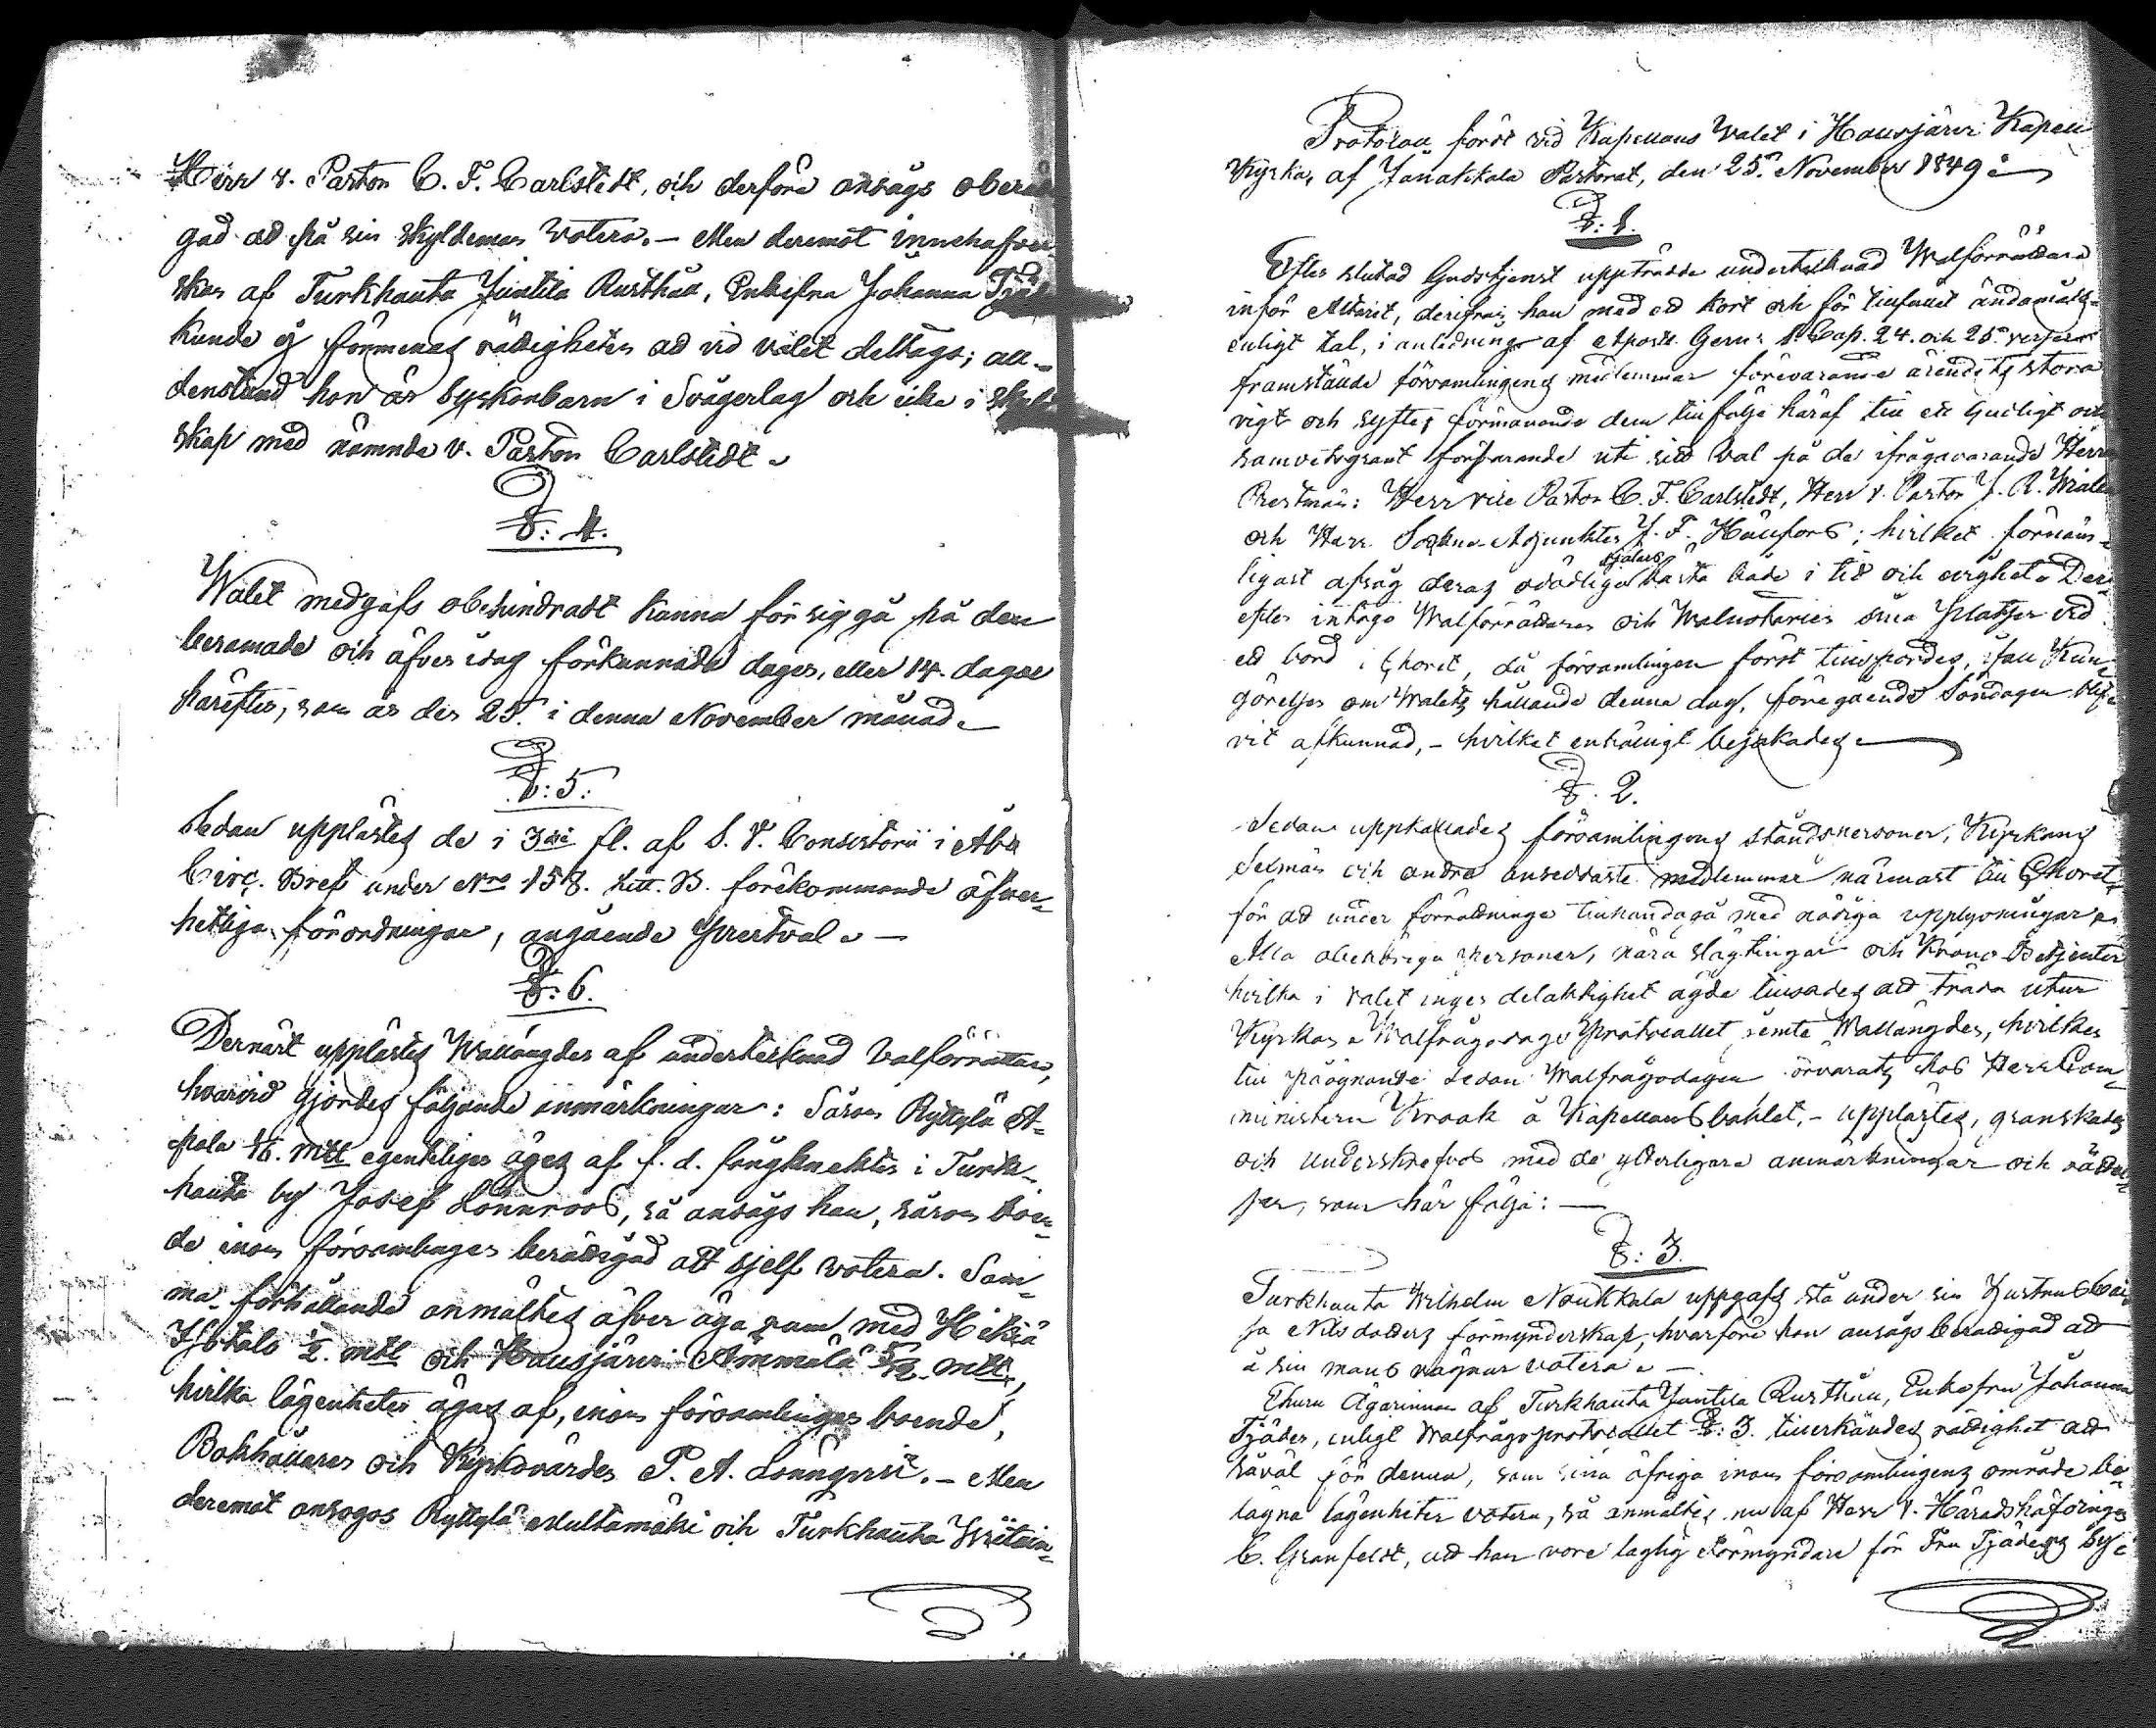 Herr v. Pastor C. F. Carlstedt, och derföre ansågs oberät
gad att på sin skyldeman votera. – Men deremot innehafver-
skan af Turkhauta Juntila Rusthåll, Enkefru Johanna Tjäd
kunde ej förmenas rättigheten att vid valet deltaga; all-
denstund hon är syskonbarn i Svågerlag och icke i Skyld
skap med nämnde v. Pastor Carlstedt.
§: 4.
Walet medgafs obehindradt kunna försiggå på den
beramade och äfven idag förkunnade dagen, eller 14. dagar
härefter, som är den 25. i denna November månad.
§: 5.
Sedan upplästes de i 3die fl. af S. V. Consistorii i Åbo
Circ. Bref under Nro 158. Litt. B. förekommande öfver-
hetliga förordningar, angående Prestval. –
§: 6.
Dernäst upplästes Wallängden af undertecknad Valförrättare,
hvarvid gjordes följande anmärkningar: Såsom Ryttylä A-
pala 1/6. mtl egenteligen äges af f. d. fångknekten i Turk-
hauta by Josef Lönnroos, så ansågs han, såsom boen-
de inom församlingen berättigad att sjelf votera. Sam-
ma förhållande anmältes äfven äga rum med Hikiä
Yhtals 1/2. mtl och Hausjärvi Ammälä 5/12 mtl,
hvilka lägenheter ägas af, inom församlingen boende,
Bokhållaren och Kyrkovärden P. A. Lönnqvist. – Men
deremot ansågos Ryttylä Multamäki och Turkhauta
Protocoll fördt vid Kapellans Valet i Hausjärvi Kapell
Kyrka, af Janakkala Pastorat, den 25. November 1849.
§: 1.
Efter slutad Gudstjenst uppträdde undertecknad Walförrättare
inför Altaret, derifrån han med ett kort och för tillfället ändamåls-
enligt tal, i anledning af Apostl. Gern: 1. Cap. 24. och 25. versen
framstälde församlingens medlemmar förevarande ärendets stora
vigt och syfte, förmanande dem till följe häraf till ett Gudligt och
samvetsgrant förfarande uti sitt val på de ifrågavarande Herr
Prestmän: Herr vice Pastor C. F. Carlstedt, Herr v. Pastor J. R.
och Herr Sockne-Adjunkten J. F. Hällfors; hvilket förnäm-
ligast afsåg deras odödliga själars bästa både i tid och evighet. Der-
efter intogo Walförrättaren och Walnotarien sina platser vid
ett bord i Choret, då församlingen först tillspordes, ifall Kun-
görelsen om Walets hållande denna dag, föregående Söndagen blif-
vit afkunnad, – hvilket enhälligt bejakades.
§. 2.
Sedan uppkallades församlingens ståndspersoner, Kyrkans
Sexmän och andra anseddaste medlemmar närmast till Choret,
för att under förrättningen tillhandagå med nödiga upplysningar.
Alla obehöriga personer, nära slägtingar och Krono Betjenter
hvilka i valet ingen delaktighet ägde tillsades att träda utur
Kyrkan. Walfrågodags Protocollet jemte Wallängden, hvilken
till påögnande sedan Walfrågodagen förvarats hos Herr Com-
ministern Kraak å Kapellans bohlet, – upplästes, granskades
och underskrefvos med de ytterligare anmärkningar och rättel-
ser, som här följa: –
§: 3.
Turkhauta Wilhelm Noukkala uppgafs stå under sin Hustrus
sa Nilsdotters förmynderskap, hvarföre hon ansågs berättigad att
å sin mans vägnar votera. –
Ehuru Ägarinnan af Turkhauta Juntila Rusthåll, Enkefru Johanna
Tjäder, enligt Walfrågoprotocollet §: 3. tillerkändes rättighet att
såväl för denna, som sina öfriga inom församlingens område be-
lägna lägenheter votera, så anmältes nu af Herr V. Häradshöfdingen
C. Granfeldt, att han vore laglig Förmyndare för Fru Tjäders